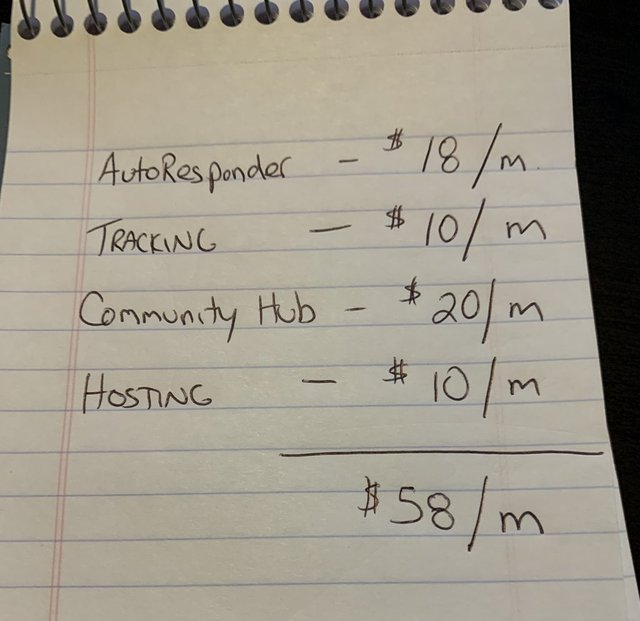 AutoResponder - $18/m.
TRACKING - $10/m
Community Hub - $20/m
HOSTING - $10/m
$58/m